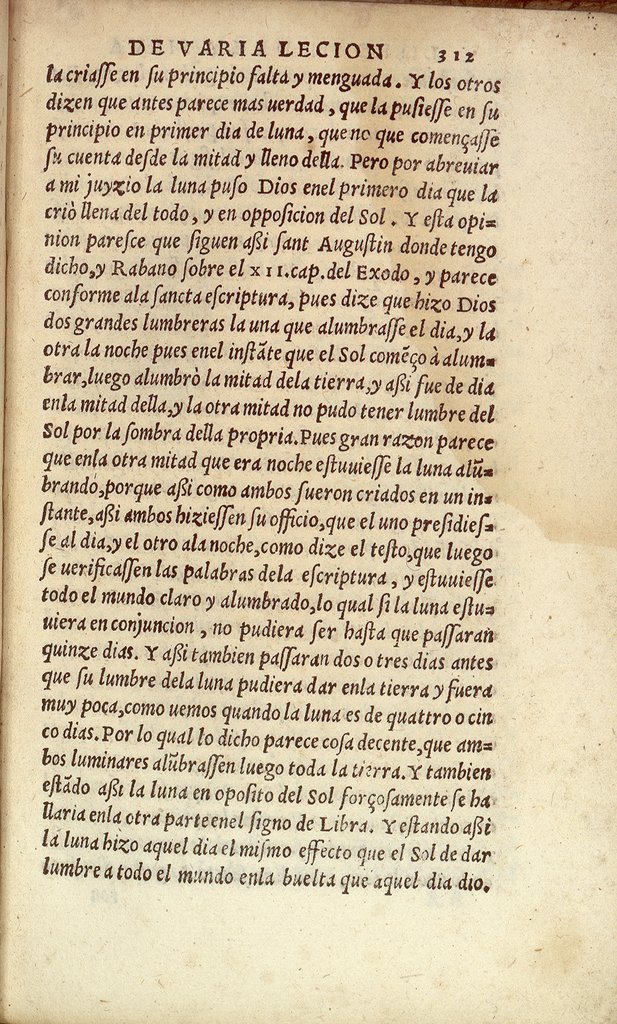 DE VARIA LECION 312
la criaſſe en ſu principio falta y menguada. Y los otros
dizen que antes parece mas uerdad, que la puſieſſe en ſu
principio en primer dia de luna, que no que començaſſe
ſu cuenta deſde la mitad y lleno della. Pero por abreuiar
a mi juyzio la luna puſo Dios enel primero dia que la
criò llena del todo, y en oppoſicion del Sol. Y eſta opi=
nion pareſce que ſiguen aßi ſant Auguſtin donde tengo
dicho, y Rabano ſobre el XII. cap. del Exodo, y parece
conforme ala ſancta eſcriptura, pues dize que hizo Dios
dos grandes lumbreras la una que alumbraſſe el dia, y la
otra la noche pues enel inſtãte que el Sol comẽço à alum=
brar, luego alumbrò la mitad dela tierra, y aßi fue de dia
enla mitad della, y la otra mitad no pudo tener lumbre del
Sol por la ſombra della propria. Pues gran razon parece
que enla otra mitad que era noche eſtuuieſſe la luna alũ=
brando, porque aßi como ambos fueron criados en un in=
ſtante, aßi ambos hizieſſen ſu officio, que el uno preſidieſ=
ſe al dia, y el otro ala noche, como dize el teſto, que luego
ſe uerificaſſen las palabras dela eſcriptura, y eſtuuieſſe
todo el mundo claro y alumbrado, lo qual ſi la luna eſtu=
uiera en conjuncion, no pudiera ſer haſta que paſſaran
quinze dias. Y aßi tambien paſſaran dos o tres dias antes
que ſu lumbre dela luna pudiera dar enla tierra y fuera
muy poca, como uemos quando la luna es de quattro o cin
co dias. Por lo qual lo dicho parece coſa decente, que am=
bos luminares alũbraſſen luego toda la tierra. Y tambien
eſtãdo aßi la luna en opoſito del Sol forçoſamente ſe ha
llaria enla otra parte enel ſigno de Libra. Y eſtando aßi
la luna hizo aquel dia el miſmo effecto que el Sol de dar
lumbre a todo el mundo enla buelta que aquel dia dio.